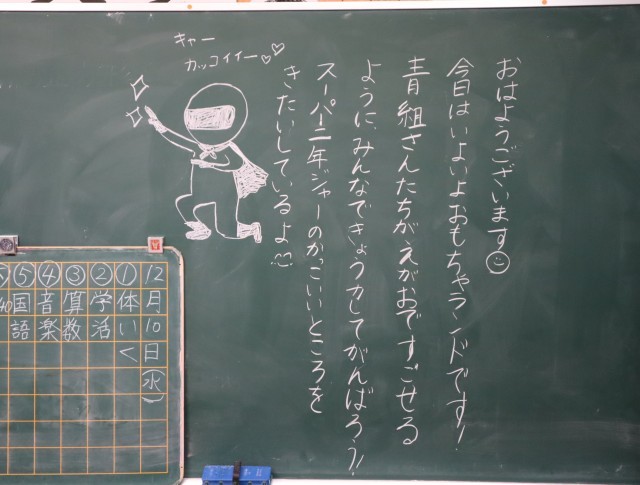 おはようございます
今日はいよいよおもちゃランドです!
青組さんたちがえがおですごせる
ように、みんなできょう力してがんばろう!!
スーパー二年ジャーのかっこいいところを
きたいしているよ
キャー
カッコイイー♡♡
12月10日(水)
①体いく
②学活
③算数
④音楽
⑤国語
40